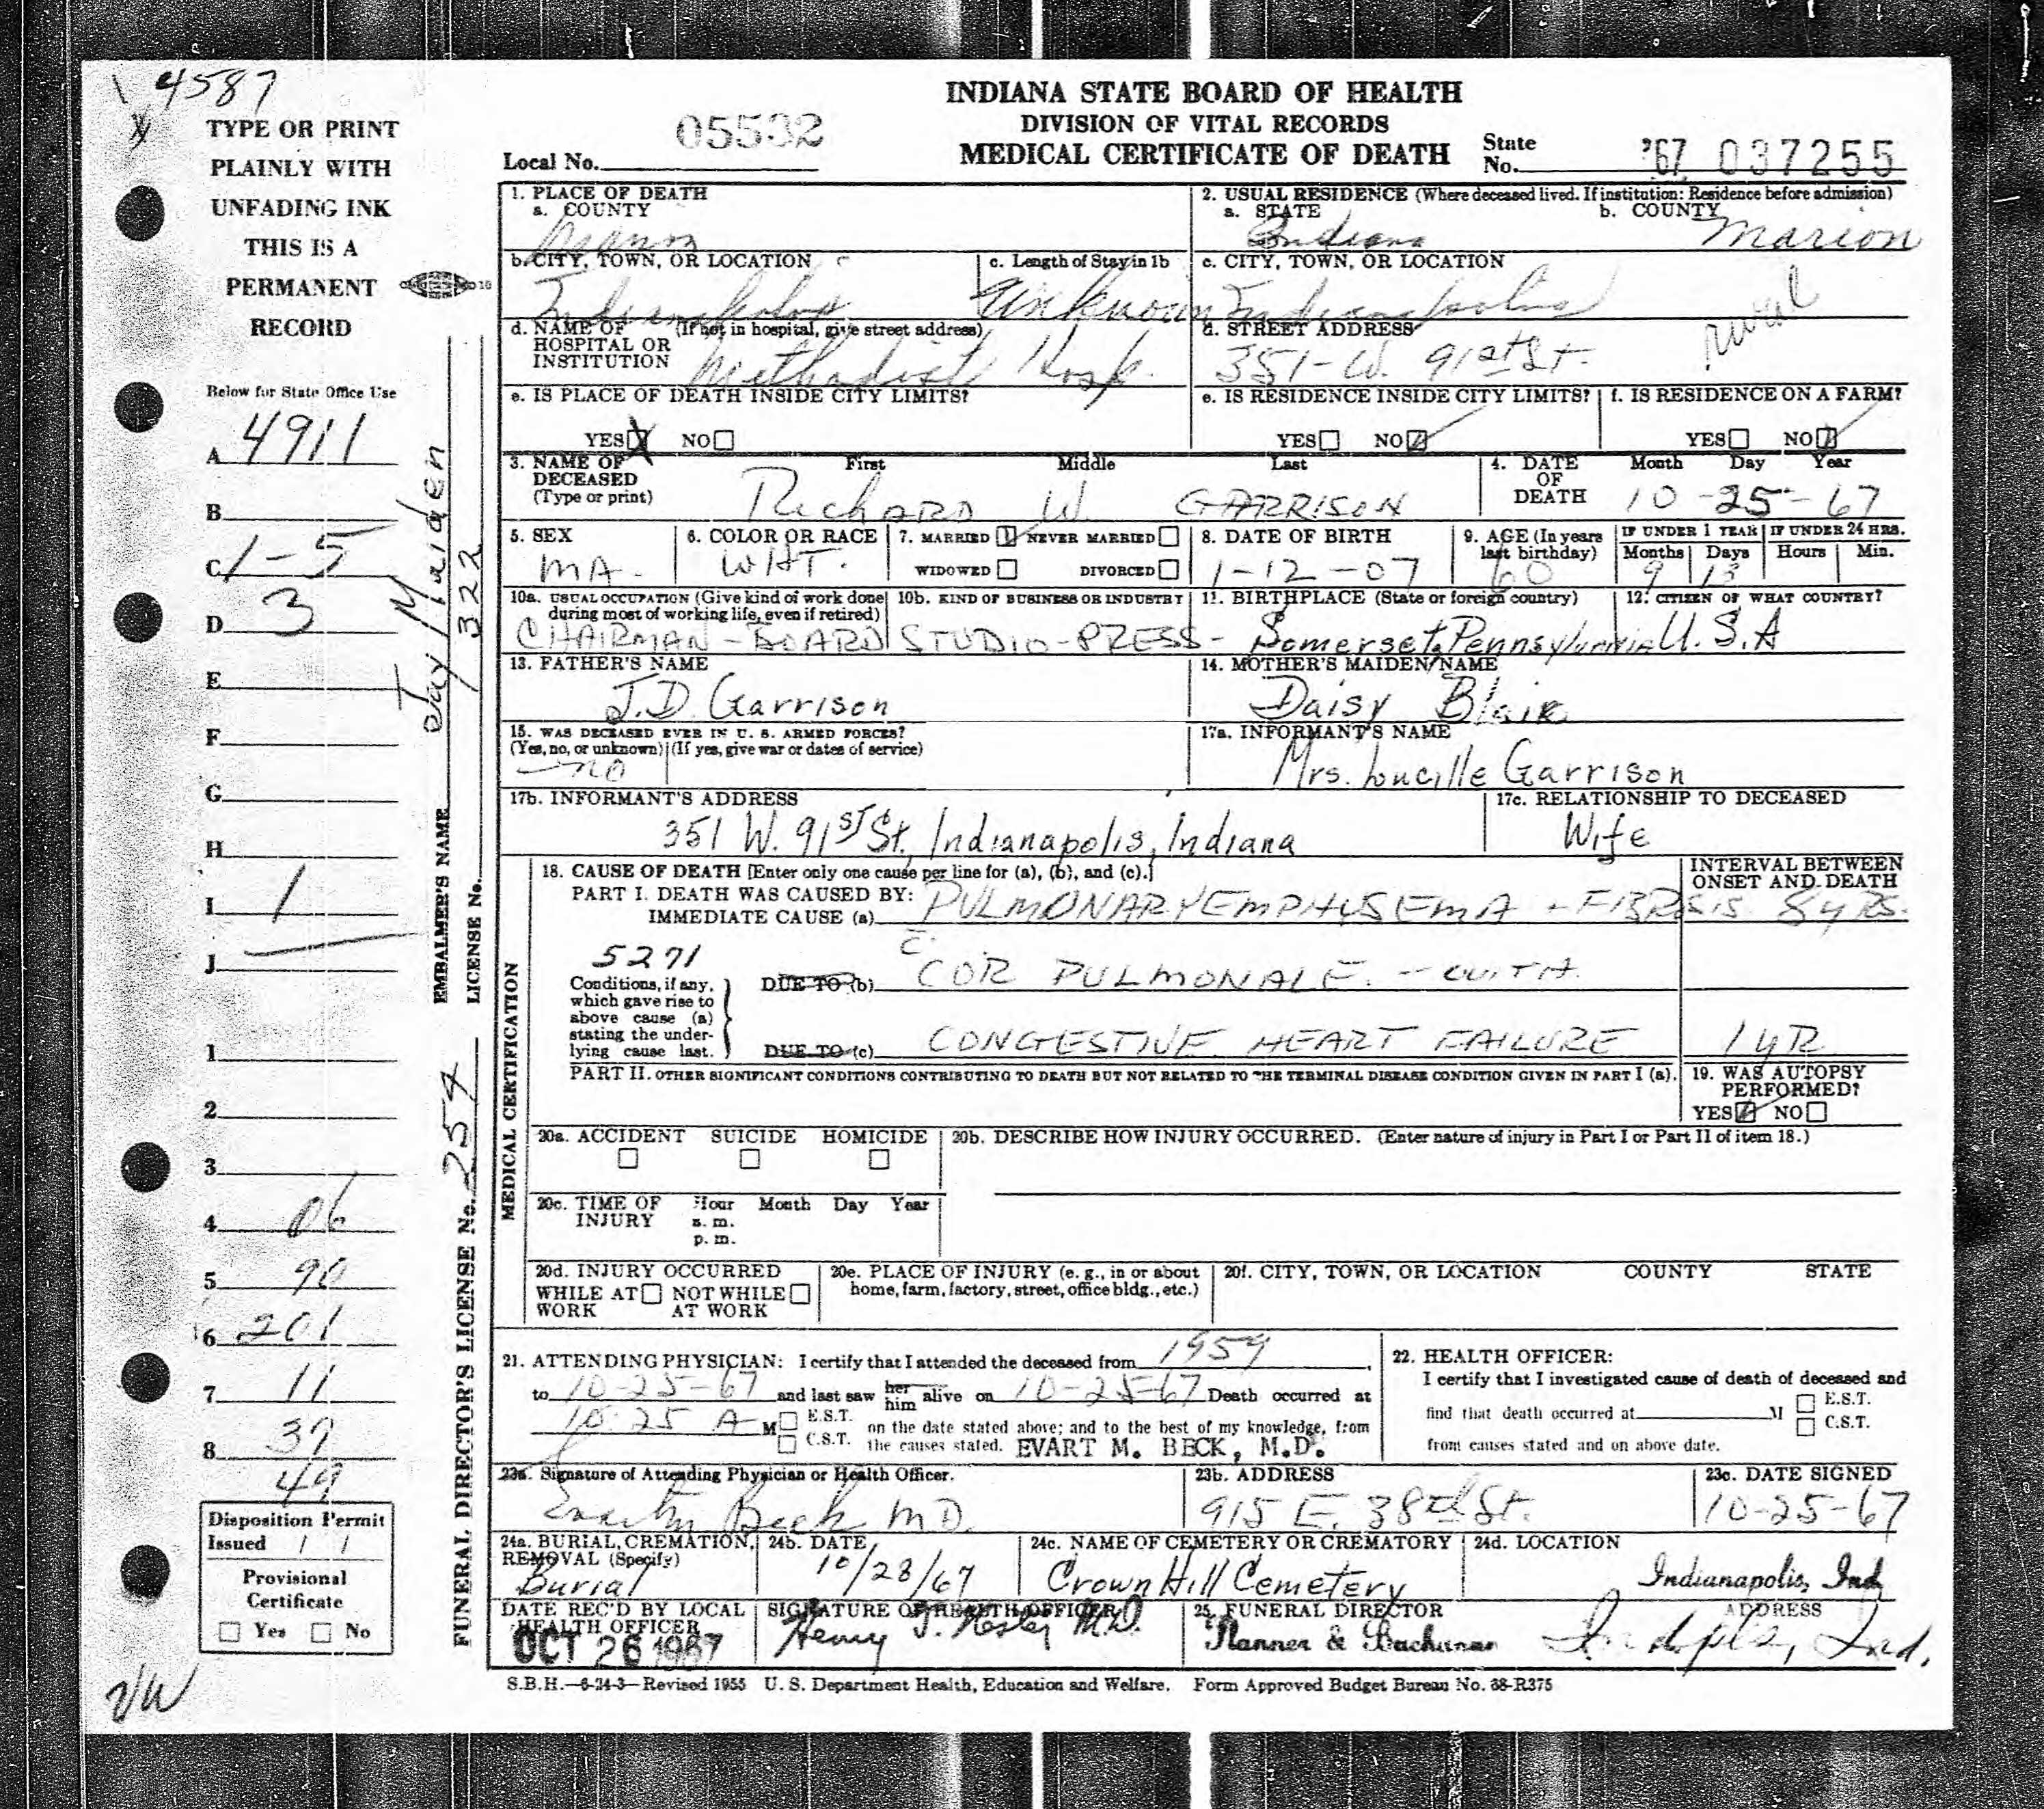 4587
TYPE OR PRINT
PLAINLY WITH
UNFADING INK
THIS IS A
PERMANENT
RECORD
Below for State Office Use
A 4911
B
C 1-5
D 3
E
F
G
H
I 1
J
1
2
3
4 06
5 90
6 201
7 11
8 37
49
Disposition Permit
Issued / /
Provisional
Certificate
Yes No
VW
EMBALMER'S NAME Jay Maiden
LICENSE No. 1322
FUNERAL DIRECTOR'S LICENSE No. 254
INDIANA STATE BOARD OF HEALTH
DIVISION OF VITAL RECORDS
MEDICAL CERTIFICATE OF DEATH
Local No. 05532
State No. '67 037255
1. PLACE OF DEATH
a. COUNTY
Marion
2. USUAL RESIDENCE (Where deceased lived. If institution: Residence before admission)
a. STATE b. COUNTY
Indiana Marion
b. CITY, TOWN, OR LOCATION c. Length of Stay in 1b
Indianapolis Unknown
c. CITY, TOWN, OR LOCATION
Indianapolis rural
d. NAME OF (If not in hospital, give street address)
HOSPITAL OR
INSTITUTION Methodist Hosp.
d. STREET ADDRESS
351-W. 91st St.
e. IS PLACE OF DEATH INSIDE CITY LIMITS?
YES X NO
e. IS RESIDENCE INSIDE CITY LIMITS?
YES NO
f. IS RESIDENCE ON A FARM?
YES NO
3. NAME OF DECEASED (Type or print) First Middle Last
Richard W. GARRISON
4. DATE OF DEATH Month Day Year
10-25-67
5. SEX
MA.
6. COLOR OR RACE
WHT.
7. MARRIED NEVER MARRIED
WIDOWED DIVORCED
8. DATE OF BIRTH
1-12-07
9. AGE (In years last birthday)
60
IF UNDER 1 YEAR IF UNDER 24 HRS.
Months Days Hours Min.
9 13
10a. USUAL OCCUPATION (Give kind of work done during most of working life, even if retired)
CHAIRMAN-BOARD
10b. KIND OF BUSINESS OR INDUSTRY
STUDIO-PRESS-
11. BIRTHPLACE (State or foreign country)
Somerset, Pennsylvania
12. CITIZEN OF WHAT COUNTRY?
U.S.A
13. FATHER'S NAME
J.D. Garrison
14. MOTHER'S MAIDEN NAME
Daisy Blair
15. WAS DECEASED EVER IN U. S. ARMED FORCES?
(Yes, no, or unknown) (If yes, give war or dates of service)
no
17a. INFORMANT'S NAME
Mrs. Lucille Garrison
17b. INFORMANT'S ADDRESS
351 W. 91ST St., Indianapolis, Indiana
17c. RELATIONSHIP TO DECEASED
Wife
MEDICAL CERTIFICATION
18. CAUSE OF DEATH [Enter only one cause per line for (a), (b), and (c).]
PART I. DEATH WAS CAUSED BY:
IMMEDIATE CAUSE (a) PULMONARY EMPHYSEMA + FIBROSIS
INTERVAL BETWEEN
ONSET AND DEATH
8 yRS.
5271
Conditions, if any, which gave rise to above cause (a) stating the underlying cause last.
DUE TO (b) COR PULMONALE - WITH
DUE TO (c) CONGESTIVE HEART FAILURE 1 yR
PART II. OTHER SIGNIFICANT CONDITIONS CONTRIBUTING TO DEATH BUT NOT RELATED TO THE TERMINAL DISEASE CONDITION GIVEN IN PART I (a).
19. WAS AUTOPSY
PERFORMED?
YES NO
20a. ACCIDENT SUICIDE HOMICIDE
20b. DESCRIBE HOW INJURY OCCURRED. (Enter nature of injury in Part I or Part II of item 18.)
20c. TIME OF INJURY Hour Month Day Year
a. m.
p. m.
20d. INJURY OCCURRED
WHILE AT WORK NOT WHILE AT WORK
20e. PLACE OF INJURY (e. g., in or about home, farm, factory, street, office bldg., etc.)
20f. CITY, TOWN, OR LOCATION COUNTY STATE
21. ATTENDING PHYSICIAN: I certify that I attended the deceased from 1959,
to 10-25-67 and last saw her him alive on 10-25-67 Death occurred at
10:25 A M E.S.T. C.S.T. on the date stated above; and to the best of my knowledge, from
the causes stated. EVART M. BECK, M.D.
22. HEALTH OFFICER:
I certify that I investigated cause of death of deceased and
find that death occurred at M E.S.T. C.S.T.
from causes stated and on above date.
23a. Signature of Attending Physician or Health Officer.
Evart M Beck MD.
23b. ADDRESS
915 E. 38th St.
23c. DATE SIGNED
10-25-67
24a. BURIAL, CREMATION, REMOVAL (Specify)
Burial
24b. DATE
10/28/67
24c. NAME OF CEMETERY OR CREMATORY
Crown Hill Cemetery
24d. LOCATION
Indianapolis, Ind.
DATE REC'D BY LOCAL HEALTH OFFICER
OCT 26 1967
SIGNATURE OF HEALTH OFFICER
Henry G. Nester M.D.
25. FUNERAL DIRECTOR ADDRESS
Flanner & Buchanan Indpls, Ind.
S.B.H.—6-24-3—Revised 1955 U. S. Department Health, Education and Welfare. Form Approved Budget Bureau No. 68-R375